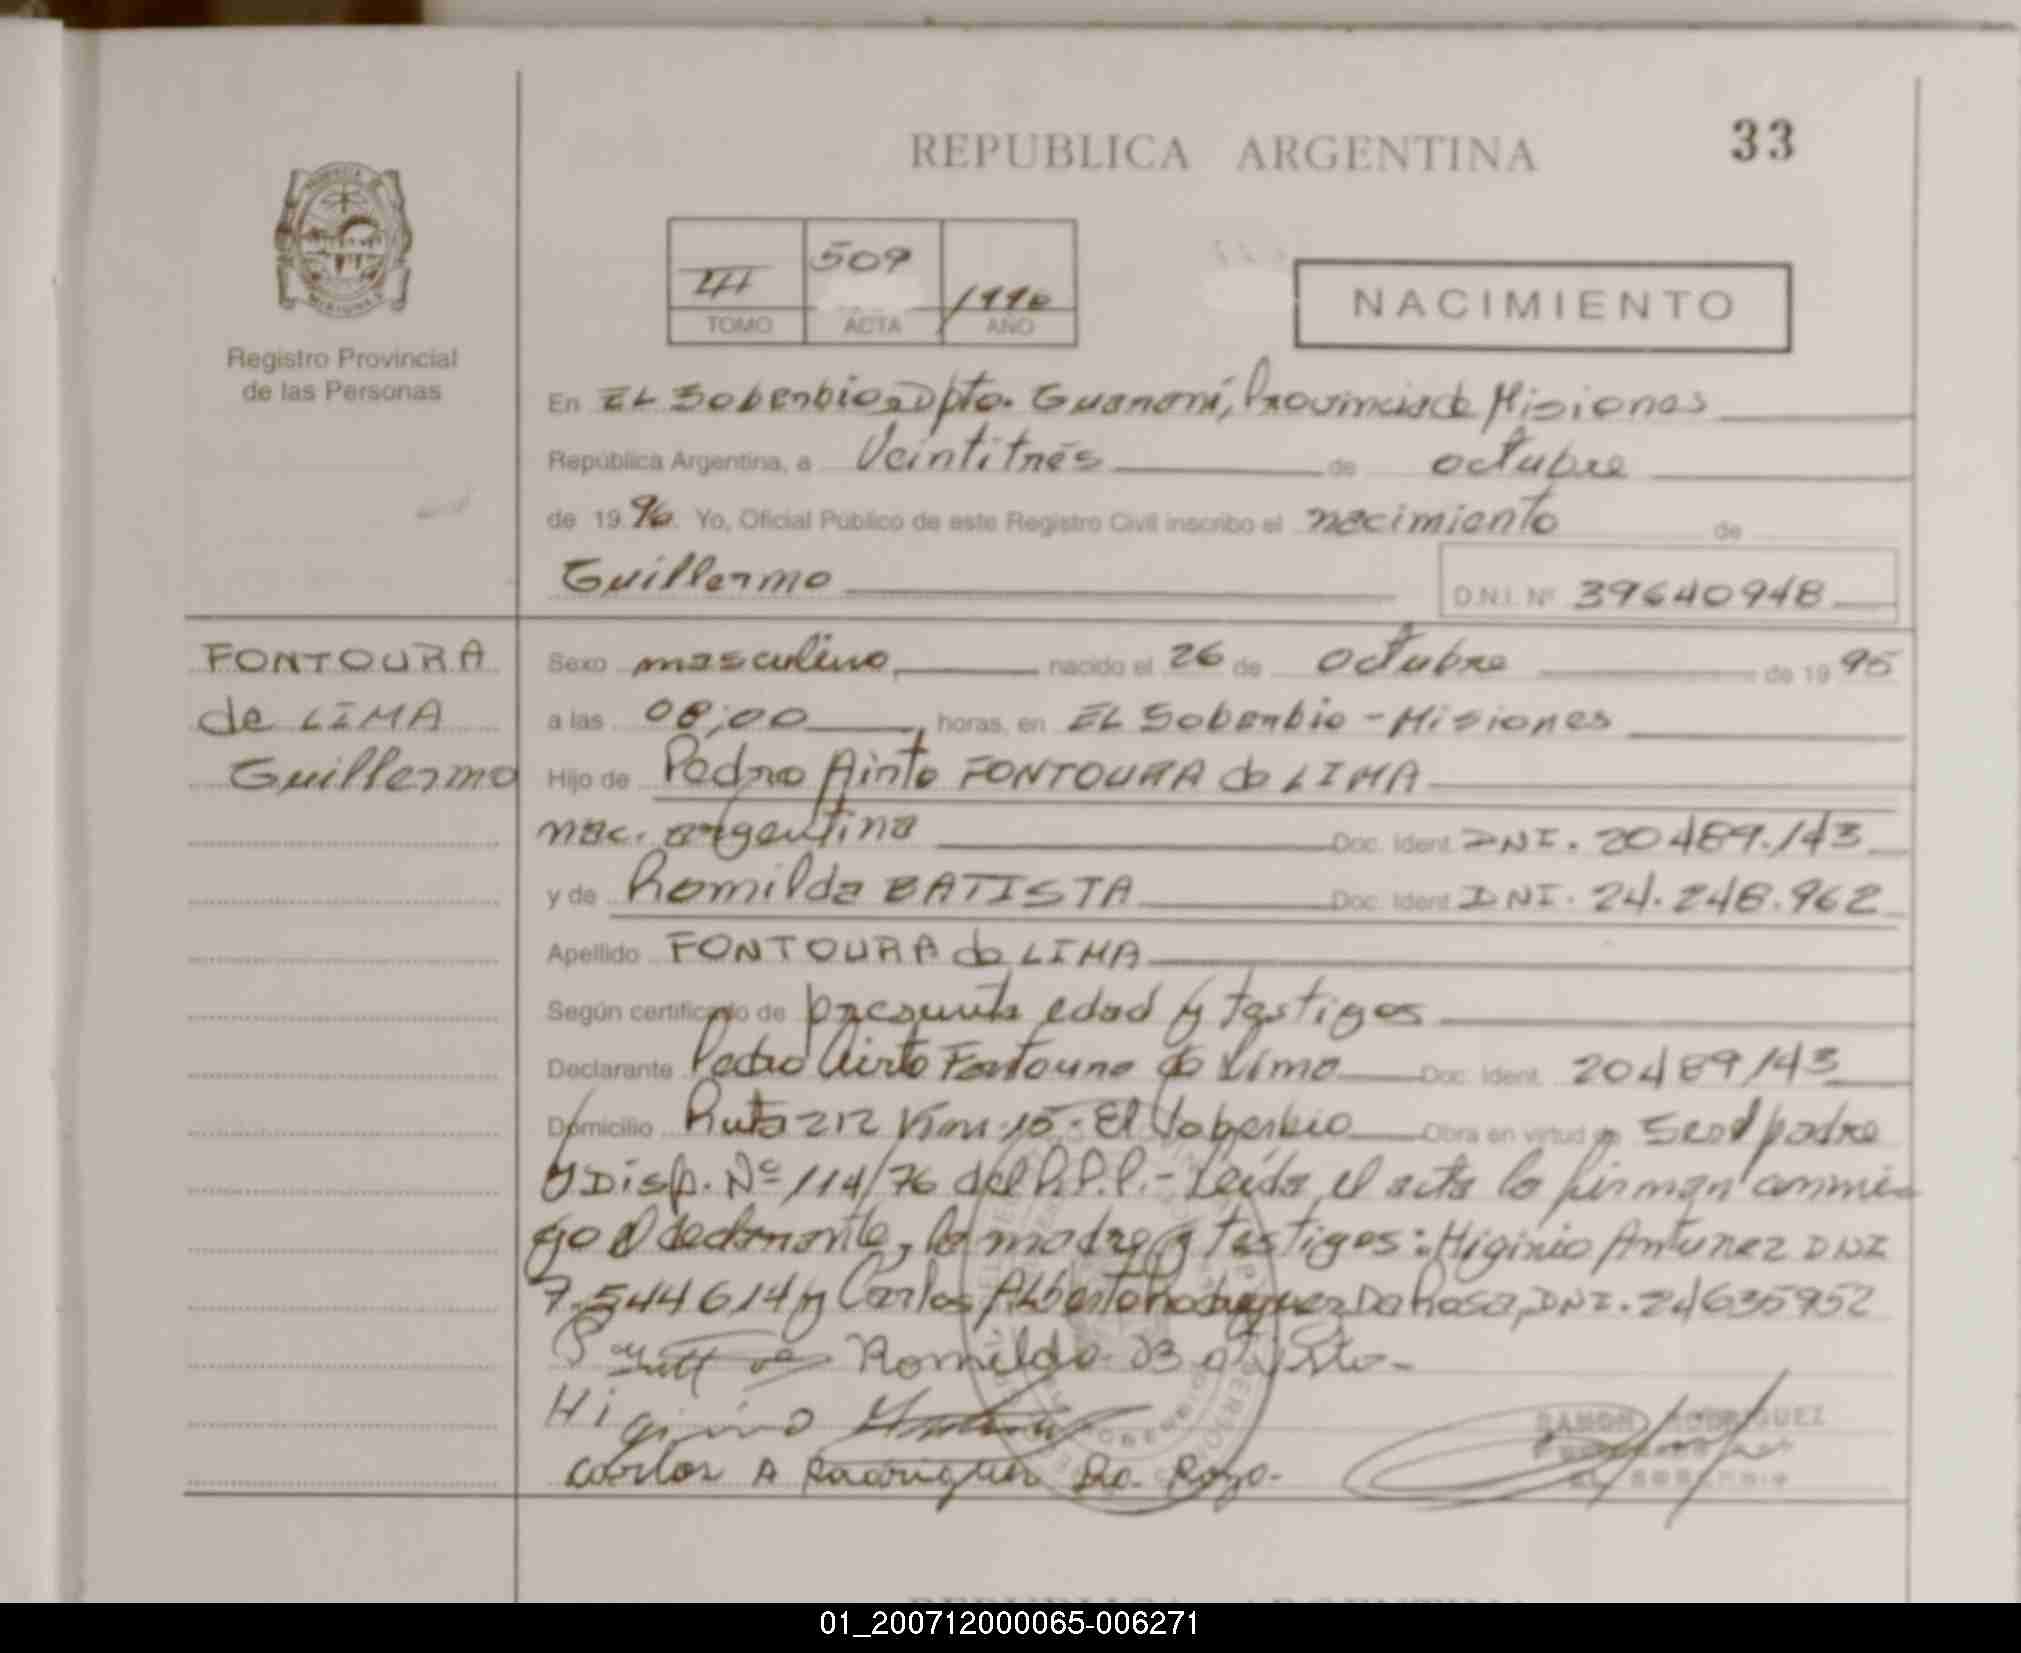 REPUBLICA ARGENTINA
33
Registro Provincial
de las Personas
509
1996
TOMO ACTA AÑO
NACIMIENTO
En EL Soberbio, Dpto. Guaraní, Provincia de Misiones
República Argentina, a Veintitrés de octubre
de 19 96. Yo, Oficial Público de este Registro Civil inscribo el nacimiento de
Guillermo
D.N.I. Nº 39640948
FONTOURA
de LIMA
Guillermo
Sexo masculino, nacido el 26 de octubre de 19 95
a las 08;00, horas, en EL Soberbio - Misiones
Hijo de Pedro Airto FONTOURA de LIMA
nac. argentina Doc. Ident. DNI. 20489.143
y de Romilda BATISTA Doc. Ident. DNI. 24.248.962
Apellido FONTOURA de LIMA
Según certificado de presunta edad y testigos
Declarante Pedro Airto Fontoura de Lima Doc. Ident. 20489143
Domicilio Ruta 212 Km. 15 - El Soberbio Obra en virtud de ser el padre
y Disp. Nº 114/76 del R.P.P. - Leída el acta la firman conmi-
go el declarante, la madre y testigos: Higinio Antunez DNI
7.544614 y Carlos Alberto Rodriguez Da Rosa, DNI. 24635952
Romilda Batista
Higinio
Carlos A Rodriguez Da Roza.
RAMON RODRIGUEZ
EL SOBERBIO
01_200712000065-006271